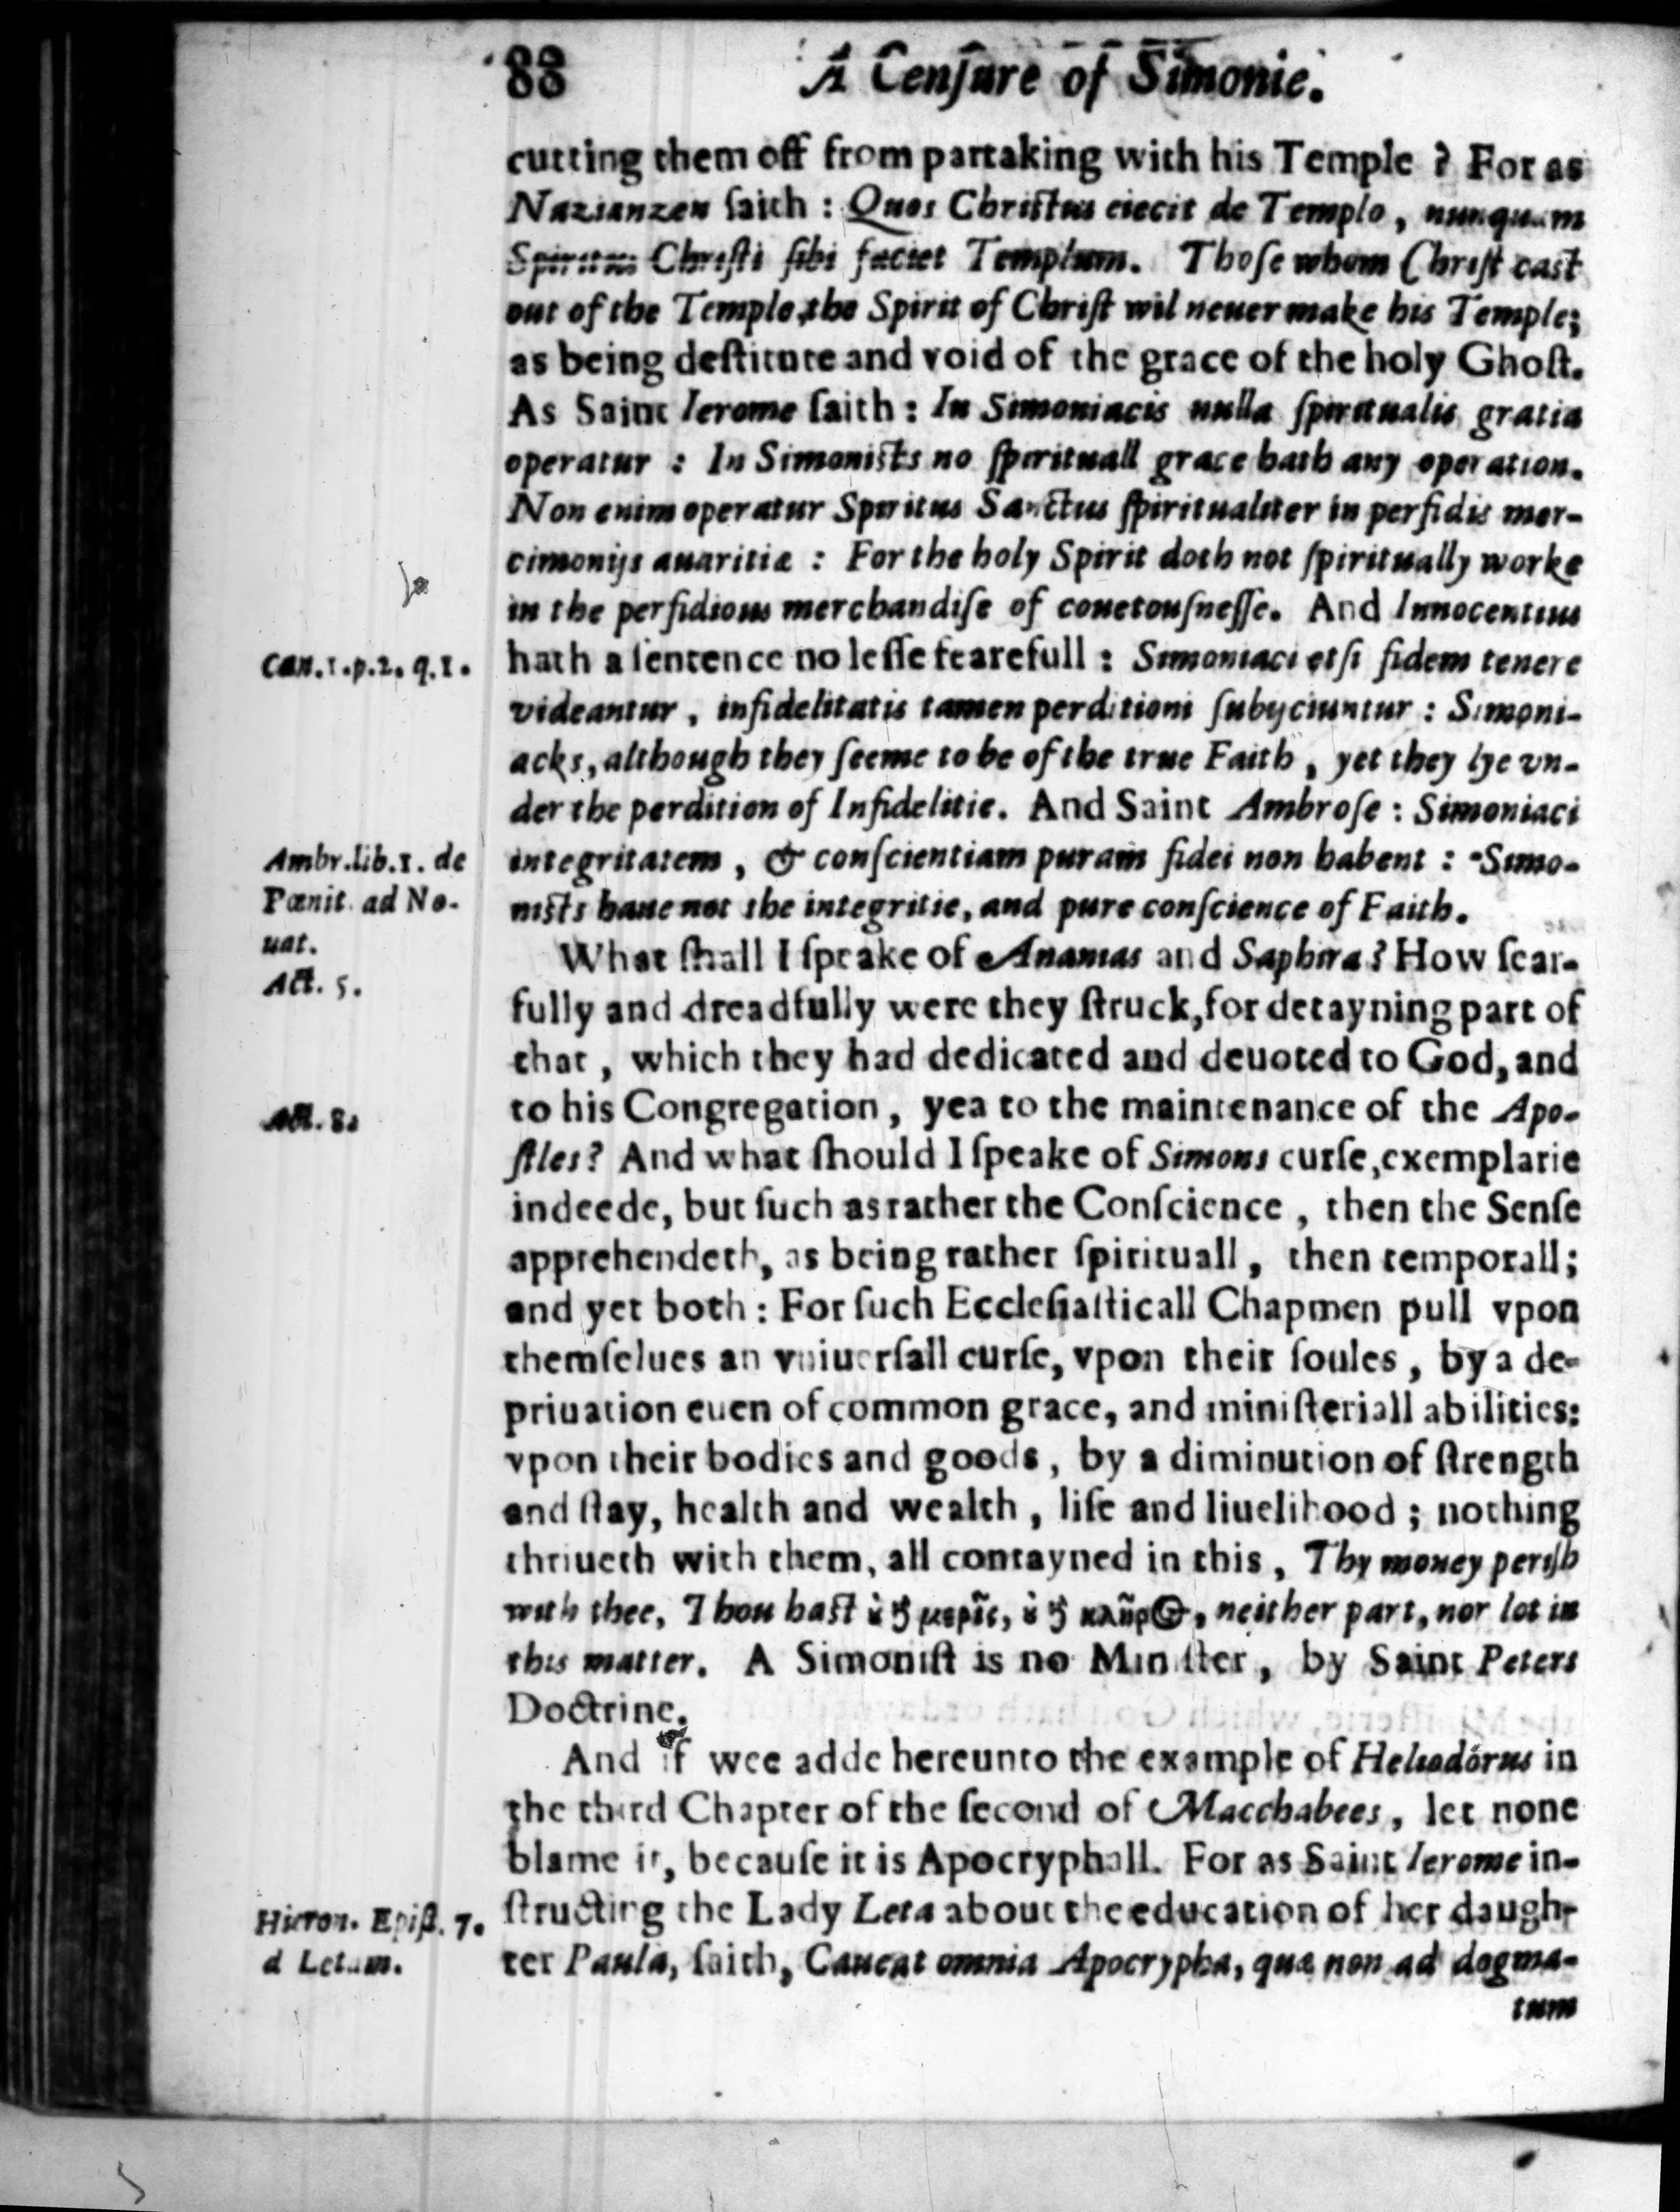 88 A Cenſure of Simonie.
cutting them off from partaking with his Temple ? For as
Nazianzen ſaith : Quos Chriſtus eiecit de Templo, nunquam
Spiritus Chriſti ſibi faciet Templum. Thoſe whom Chriſt caſt
out of the Temple, the Spirit of Chriſt wil neuer make his Temple;
as being deſtitute and void of the grace of the holy Ghoſt.
As Saint Ierome ſaith : In Simoniacis nulla ſpiritualis gratia
operatur : In Simoniſts no ſpirituall grace hath any operation.
Non enim operatur Spiritus Sanctus ſpiritualiter in perfidis mer-
cimonijs auaritiæ : For the holy Spirit doth not ſpiritually worke
in the perfidious merchandiſe of couetouſneſſe. And Innocentius
Can. 1. p. 2. q. 1.
hath a ſentence no leſſe fearefull : Simoniaci etſi fidem tenere
videantur, infidelitatis tamen perditioni ſubijciuntur : Simoni-
acks, although they ſeeme to be of the true Faith, yet they lye vn-
der the perdition of Infidelitie. And Saint Ambroſe : Simoniaci
Ambr. lib. 1. de
Pœnit. ad No-
uat.
integritatem, & conſcientiam puram fidei non habent : Simo-
niſts haue not the integritie, and pure conſcience of Faith.
Act. 5.
What ſhall I ſpeake of Ananias and Saphira? How fear-
fully and dreadfully were they ſtruck, for detayning part of
that, which they had dedicated and deuoted to God, and
Act. 8.
to his Congregation, yea to the maintenance of the Apo-
ſtles? And what ſhould I ſpeake of Simons curſe, exemplarie
indeede, but ſuch as rather the Conſcience, then the Senſe
apprehendeth, as being rather ſpirituall, then temporall;
and yet both : For ſuch Eccleſiaſticall Chapmen pull vpon
themſelues an vniuerſall curſe, vpon their ſoules, by a de-
priuation euen of common grace, and miniſteriall abilities:
vpon their bodies and goods, by a diminution of ſtrength
and ſtay, health and wealth, life and liuelihood ; nothing
thriueth with them, all contayned in this, Thy money periſh
with thee, Thou haſt neither part, nor lot in
this matter. A Simoniſt is no Miniſter, by Saint Peters
Doctrine.
And if wee adde hereunto the example of Heliodorus in
the third Chapter of the ſecond of Macchabees, let none
blame it, becauſe it is Apocryphall. For as Saint Ierome in-
Hieron. Epiſt. 7.
d Letam.
ſtructing the Lady Leta about the education of her daugh-
ter Paula, ſaith, Caueat omnia Apocrypha, quæ non ad dogma-
tum